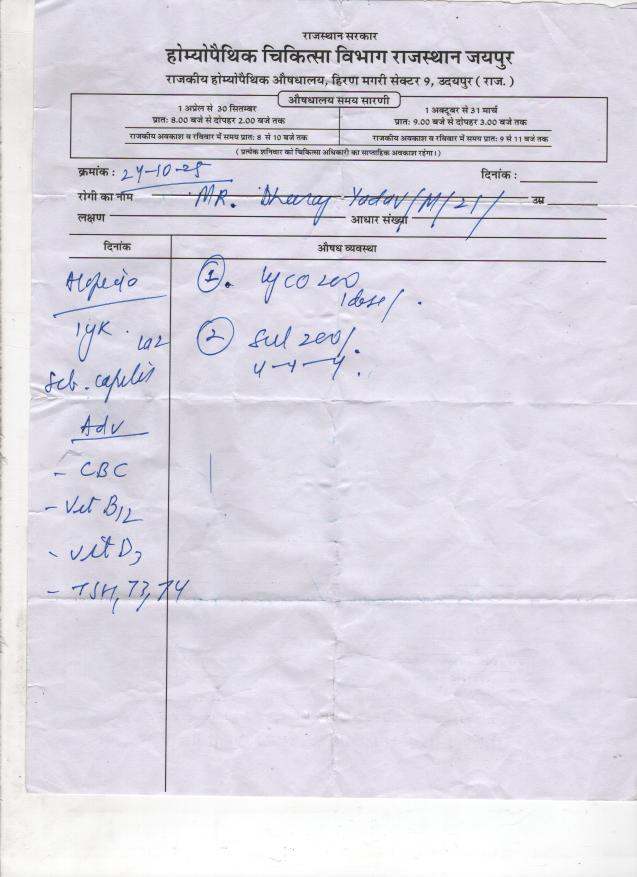 राजस्थान सरकार
होम्योपैथिक चिकित्सा विभाग राजस्थान जयपुर
राजकीय होम्योपैथिक औषधालय, हिरण मगरी सेक्टर 9, उदयपुर ( राज. )
औषधालय समय सारणी
1 अप्रेल से 30 सितम्बर
प्रात: 8.00 बजे से दोपहर 2.00 बजे तक
राजकीय अवकाश व रविवार में समय प्रात: 8 से 10 बजे तक
1 अक्टूबर से 31 मार्च
प्रात: 9.00 बजे से दोपहर 3.00 बजे तक
राजकीय अवकाश व रविवार में समय प्रात: 9 से 11 बजे तक
( प्रत्येक शनिवार को चिकित्सा अधिकारी का साप्ताहिक अवकाश रहेगा। )
क्रमांक : 24-10-25 दिनांक :
रोगी का नाम MR. Dheeraj Yadav/M/21/ उम्र
लक्षण आधार संख्या
दिनांक औषध व्यवस्था
Alopecia
1yr.
Seb. capitis
Adv
- CBC
- Vit B12
- Vit D3
- TSH, T3, T4
1. Lyco 200
1dose/.
2 Sul 200/.
4-4-4.